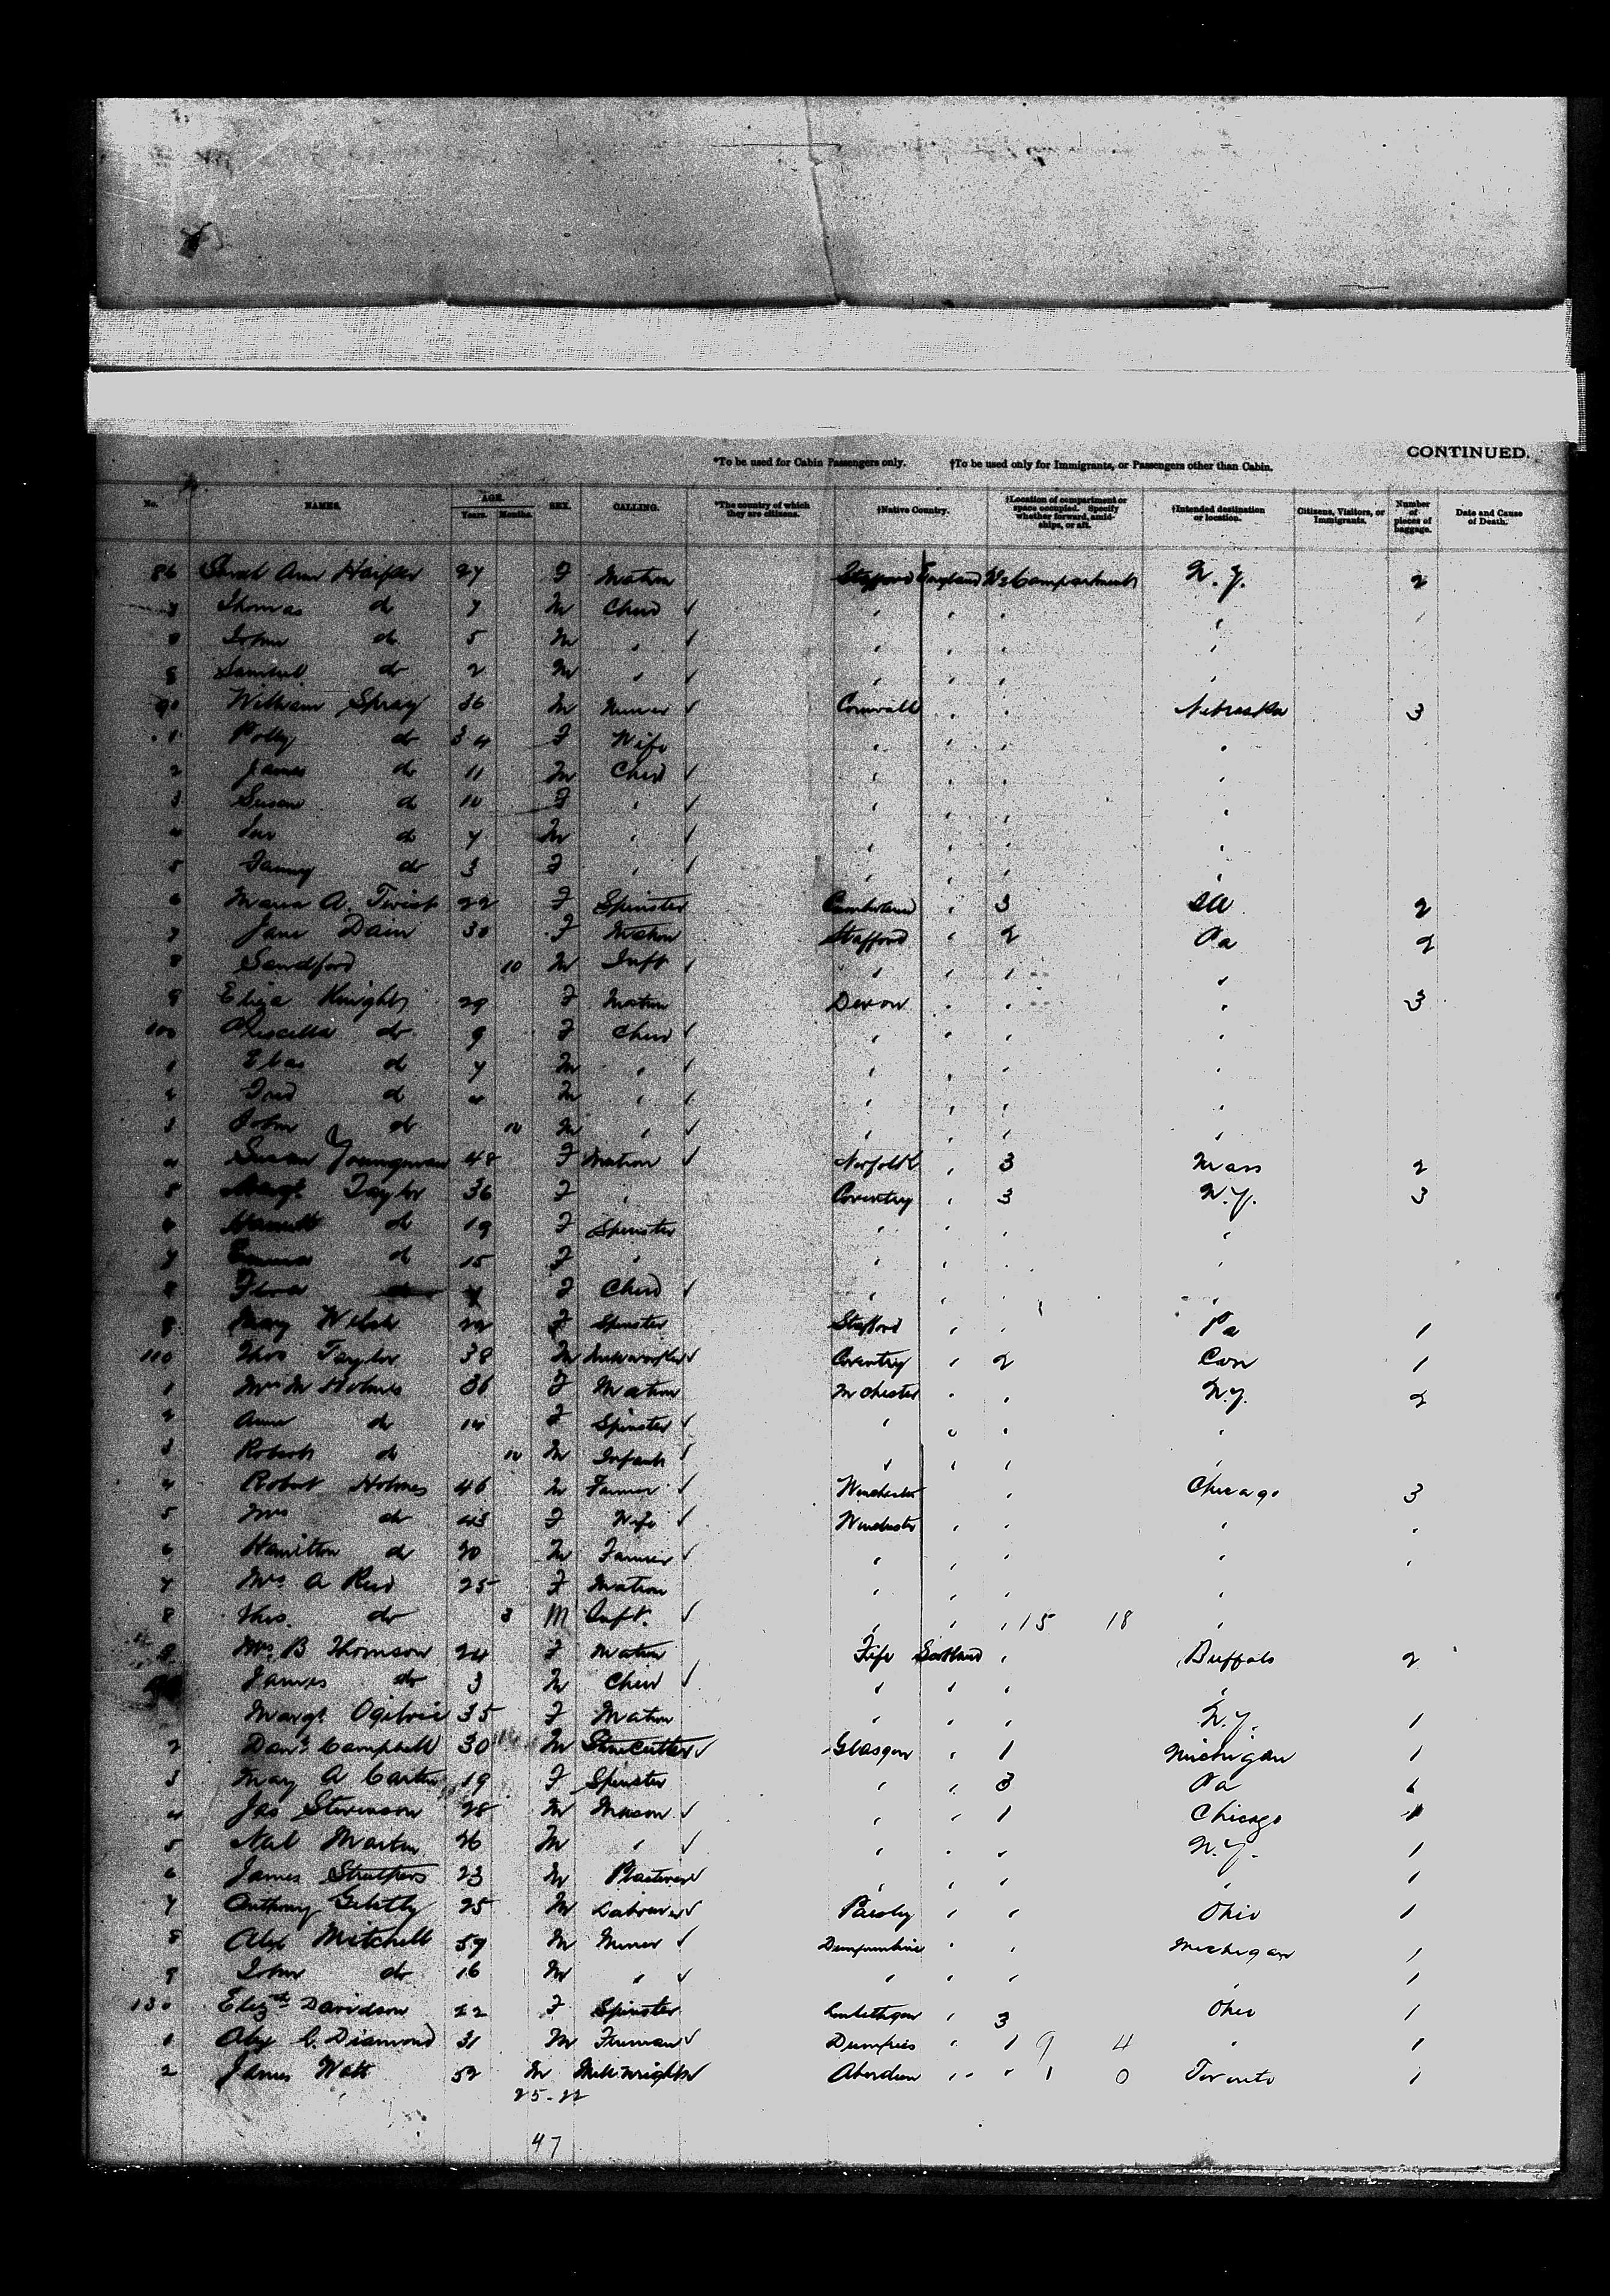 CONTINUED.
*To be used for Cabin Passengers only. †To be used only for Immigrants, or Passengers other than Cabin.
No. NAMES. AGE. Years. Months. SEX. CALLING. *The country of which they are citizens. †Native Country. †Location of compartment or space occupied. Specify whether forward, amidships, or aft. †Intended destination or location. Citizens, Visitors, or Immigrants. Number of pieces of baggage. Date and Cause of Death.
86 Sarah Ann 27 F Matron Stafford England No 2 Compartment N.Y. 2
Thomas do 7 M Child ✓ " " " "
John do 5 M " ✓ " " " "
Samuel do 2 M " ✓ " " " "
90 William Spray 36 M Miner ✓ Cornwall " " Nebraska 3
1 Polly do 34 F Wife " " " "
2 James do 11 M Child ✓ " " " "
3 Susan do 10 F " ✓ " " " "
4 do 7 M " ✓ " " " "
5 Fanny do 3 F " ✓ " " " "
6 Maria A. Twist 22 F Spinster Cumberland " 3 2
7 Jane Dain 30 F Matron Stafford " 2 Pa 2
8 Sandford 10 M Inft ✓ " " "
9 Eliza Knight 29 F Matron Devon " " " 3
100 Priscilla do 9 F Child ✓ " " " "
1 Elias do 7 M " ✓ " " " "
2 Fred do 4 M " ✓ " " " "
3 John do 10 M " ✓ " " " "
4 Susan Youngman 48 F Matron ✓ Norfolk " 3 Mass 2
5 Margt Taylor 36 F " Coventry " 3 N.Y. 3
6 do 19 F Spinster " " " "
7 Emma do 15 F " " " " "
8 Flora F Child ✓ " " " "
9 Mary Welsh 22 F Spinster Stafford " " Pa 1
110 Thos Taylor 38 M ✓ Coventry " 2 Con 1
1 Mrs M Holmes 36 F Matron Mchester " " N.Y. 2
2 Anne do 14 F Spinster ✓ " " " "
3 Robert do 10 M Infant ✓ " " " "
4 Robert Holmes 46 M Farmer ✓ Winchester " Chicago 3
5 Mrs do 43 F Wife ✓ Winchester " " " "
6 Hamilton do 20 M Farmer ✓ " " " " "
7 Mrs A Reid 25 F Matron " " " "
8 Thos. do 3 M Inft. ✓ " " " 15 18 "
9 Mrs B Thomson 24 F Matron Fife Scotland " Buffalo 2
James do 3 M Child ✓ " " " "
Margt Ogilvie 35 F Matron " " " N.Y. 1
2 Danl Campbell 30 M Stonecutter ✓ Glasgow " 1 Michigan 1
3 May A Carter 19 F Spinster " " 3 Pa 1
4 Jas Stevenson 28 M Mason ✓ " " 1 Chicago 1
5 Neil Martin 26 M " ✓ " " " N.Y. 1
6 James Struthers 23 M Plasterer ✓ " " " " 1
7 Anthony 25 M Labourer ✓ Paisley " " Ohio 1
8 Alex Mitchell 59 M Miner ✓ " " Michigan 1
9 John do 16 M " ✓ " " " " 1
130 Elizth Davidson 22 F Spinster Linlithgow " 3 Ohio 1
1 Alex C. Diamond 31 M Fireman ✓ Dumfries " 1 9 4 " 1
2 James Watt 52 M Millwright ✓ Aberdeen " " 1 0 Toronto 1
25-22
47